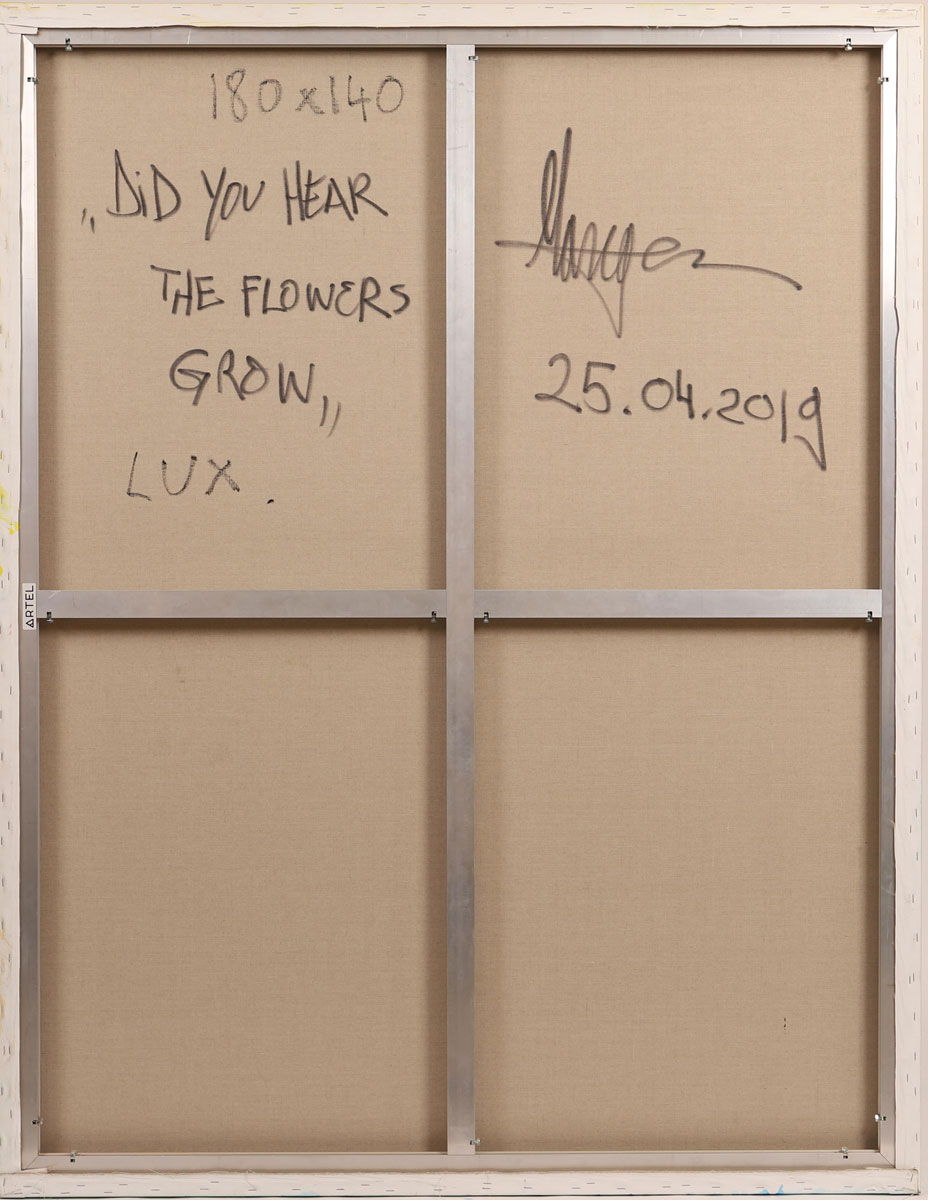 180x140
„DiD YOU HEAR
THE FLOWERS
GROW„
LUX.
25.04.2019
ARTEL